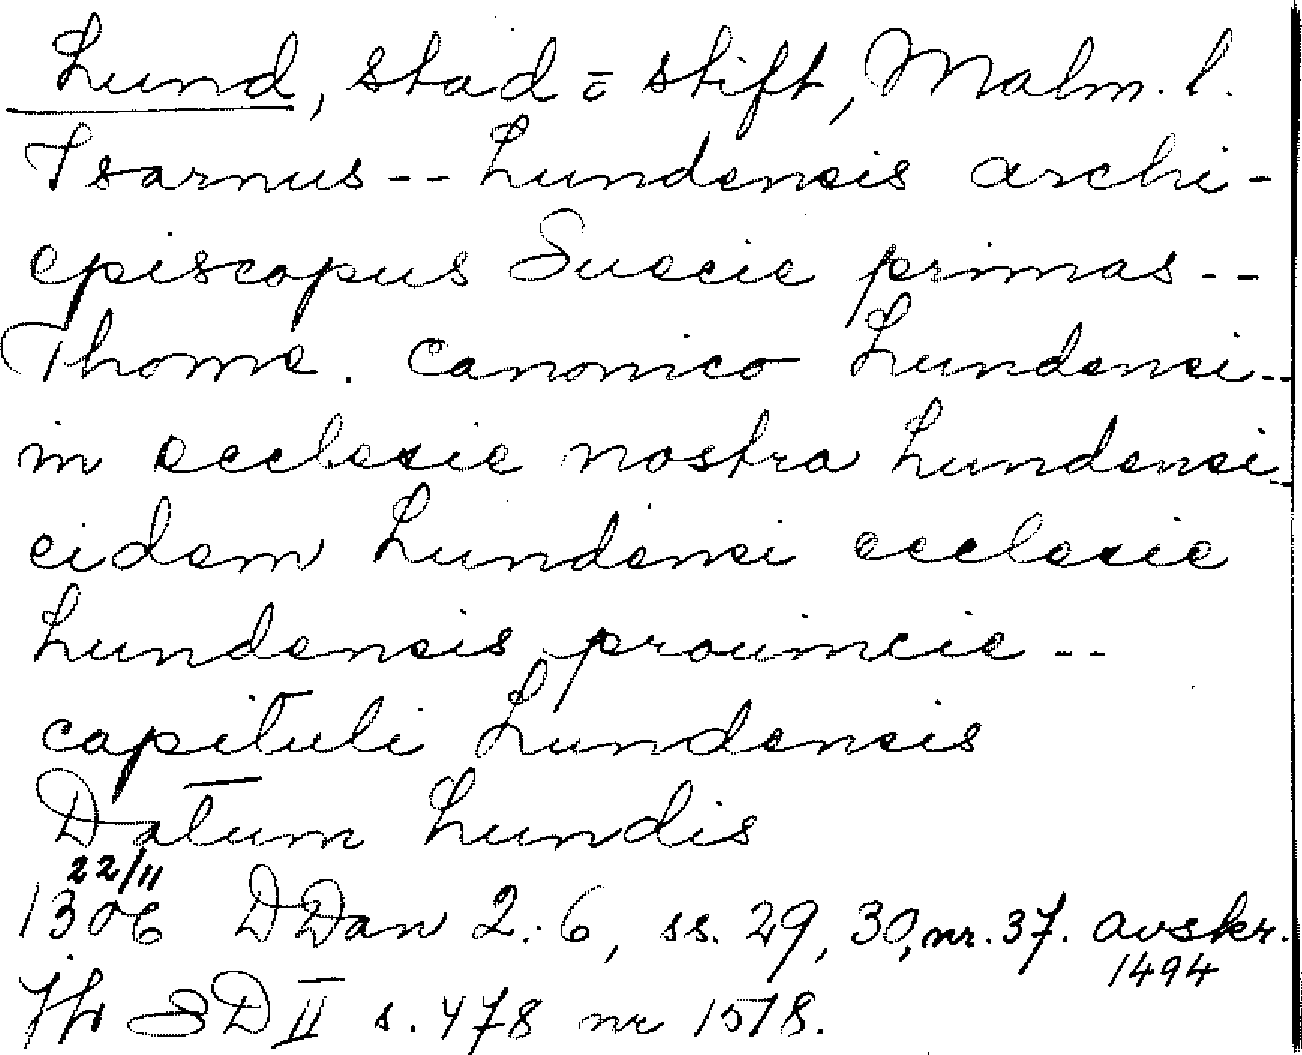 Lund, stad = stift, Malm. l.
Isarnus -- Lundensis archi-
episcopus Suecie primas --
Thome. canonico Lundensi --
in ecclesie nostra Lundensi --
eidem Lundensi ecclesie
Lundensis prouincie --
capituli Lundensis
Datum Lundis
22/11
1306 DDan 2:6, ss. 29, 30, nr. 37. avskr.
1494
Jfr SD II s. 478 nr 1518.